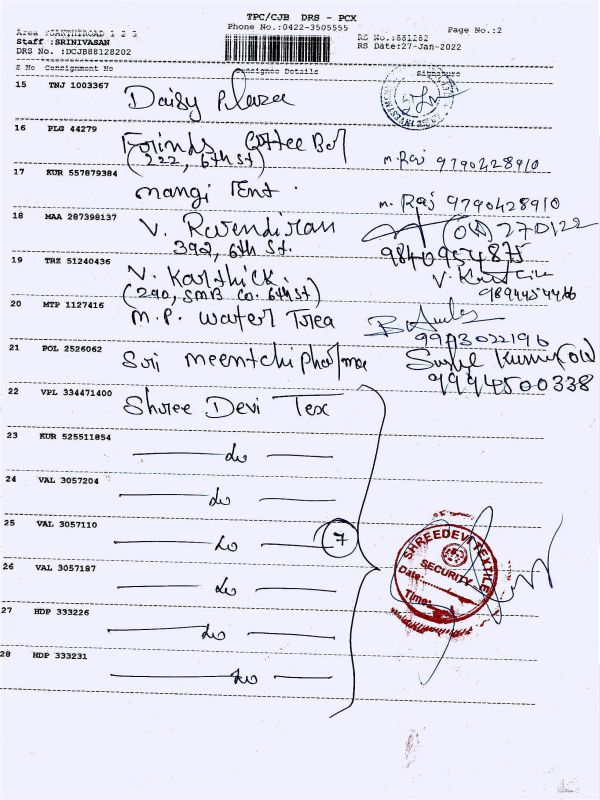 TPC/CJB DRS - PCX
Phone No.:0422-3505555
Page No.:2
Area :SANTHEROAD 1 2 3
Staff :SRINIVASAN
DRS No. :DCJB88128202
RS No.:881282
RS Date:27-Jan-2022
S No Consignment No Consignee Details Signature
15 TNJ 1003367 Daisy Plaza
16 PLG 44279 Coffee Bar
(222, 6th st) M. Raj 9790428910
17 KUR 557879384 mangi Tent. M. Raj 9790428910
18 MAA 287398137 V. Ravendiran (Off) 270122
392, 6th St. 9840954875
19 TRZ 51240436 V. Karthick.
(290, SMB Co. 6th st)
20 MTP 1127416 M.P. water Tree
21 POL 2526062 Sri meentchi pharma
9994500338
22 VPL 334471400 Shree Devi Tex
23 KUR 525511854 do
24 VAL 3057204 do
25 VAL 3057110 do 7
26 VAL 3057187 do
27 HDP 333226 do
28 HDP 333231 do
SHREEDEVI TEXTILE
SECURITY
Date:
Time: